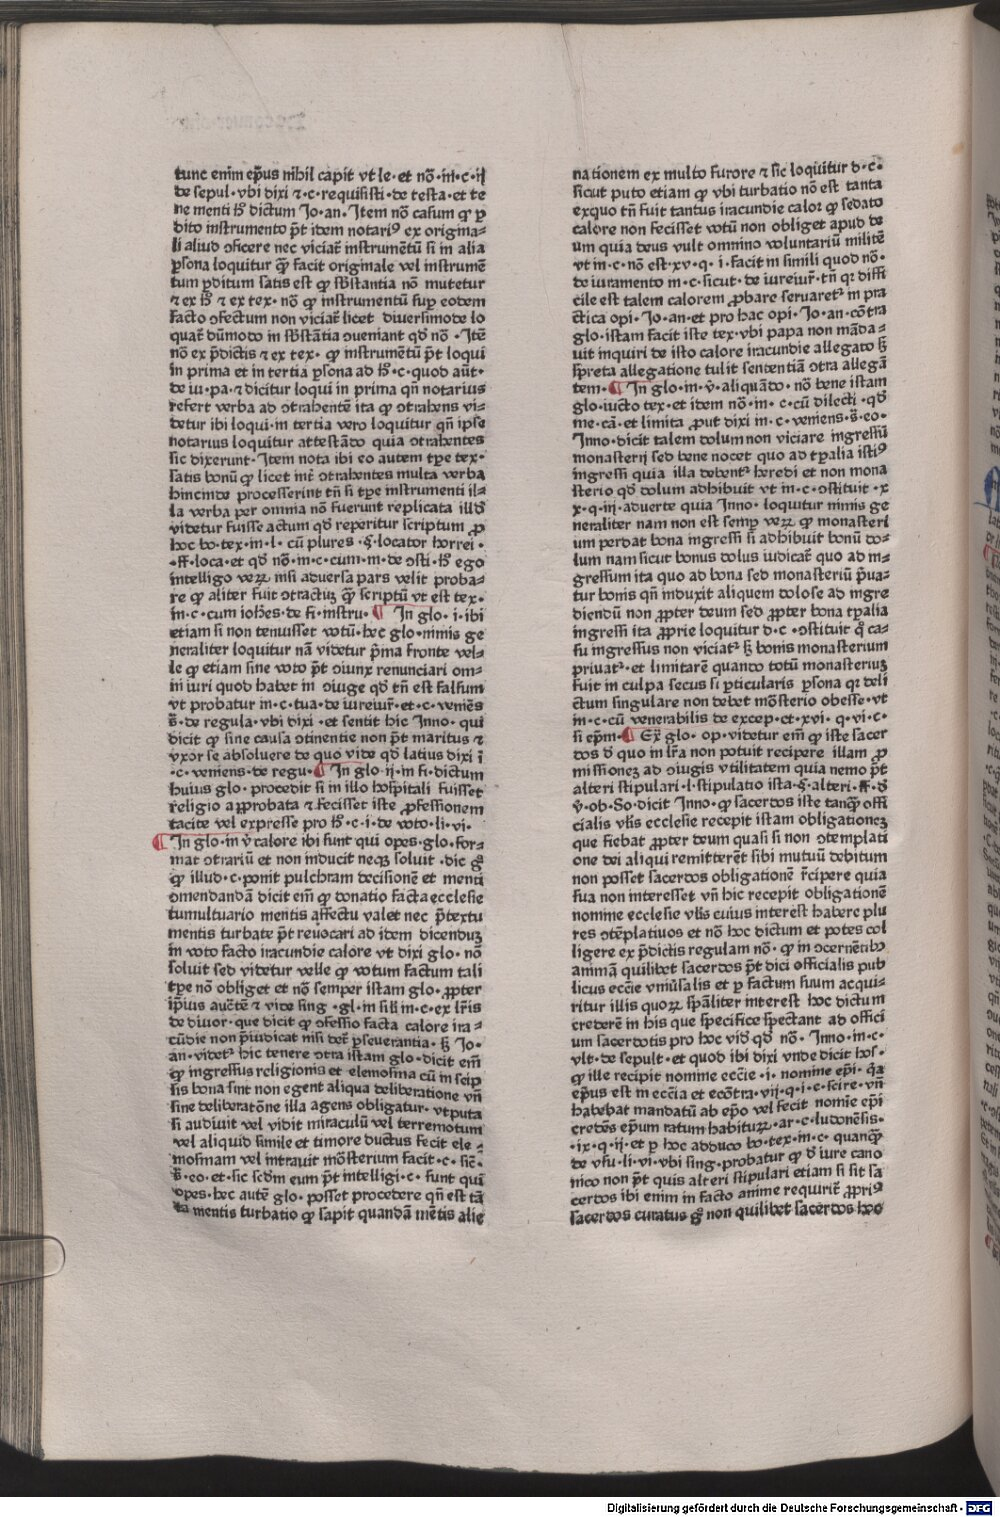 tunc enim ep̃us nihil capit vt le·et nõ·in·c·ij
de sepul·vbi dixi ⁊·c·requisisti·de testa·et te
ne menti hͦ dictum Jo·an·Item nõ casum ꝙ ꝑ
dito instrumento p̃t idem notariꝰ ex origina⸗
li aliud ɔficere nec viciat͛ instrumẽtũ si in alia
ꝑsona loquitur qͣ̃ facit originale vel instrumẽ
tum ꝑditum satis est ꝙ sb̃stantia nõ mutetur
⁊ ex hͦ ⁊ ex tex· nõ ꝙ instrumentũ suꝑ eodem
facto ɔfectum non viciat͛ licet diuersimode lo
quat͛ dũmodo in sb̃stãtia ɔueniant qd̃ nõ ·Itẽ
nõ ex p̃dictis ⁊ ex tex· ꝙ instrumẽtũ p̃t loqui
in prima et in tertia ꝑsona ad hͦ·c·quod aũt·
de iu·pa·⁊ dicitur loqui in prima qñ notarius
refert verba ad ɔtrahentẽ ita ꝙ ɔtrahens vi⸗
detur ibi loqui·in tertia vero loquitur qñ ipse
notarius loquitur attestãdo quia ɔtrahentes
sic dixerunt·Item nota ibi eo autem tꝑe tex·
satis bonũ ꝙ licet int͛ ɔtrahentes multa verba
hincinde processerint tñ si tꝑe instrumenti il⸗
la verba per omnia nõ fuerunt replicata illd̃
videtur fuisse actum qd̃ reperitur scriptum ꝓ
hoc bo·tex·in·l· cũ plures ·§·locator horrei ·
·ff·loca·et qd̃ nõ·in·c·cum·m·de ɔsti·hͦ ego
intelligo veꝝ nisi aduersa pars velit proba⸗
re ꝙ aliter fuit ɔtractus qͣ̃ scriptũ vt est tex·
in·c·cum ioh̃es·de fi·instru·¶ In glo·i·ibi
etiam si non tenuisset votũ·hec glo·nimis ge
neraliter loquitur nã videtur p̃ma fronte vel⸗
le ꝙ etiam sine voto p̃t ɔiunx renunciari om⸗
ni iuri quod habet in ɔiuge qd̃ tñ est falsum
vt probatur in·c·tua·de iureiur͛·et·c·veniẽs
s̃·de regula·vbi dixi ·et sentit hic Inno· qui
dicit ꝙ sine causa ɔtinentie non p̃t maritus ⁊
vxor se absoluere de quo vide qd̃ latius dixi ĩ
·c·veniens·de regu·¶ In glo·ij·in fi·dictum
huius glo· procedit si in illo hospitali fuisset
religio aꝓprobata ⁊ fecisset iste ꝓfessionem
tacite vel expresse pro hͦ·c·i·de voto·li·vi·
¶ In glo·in v̇ calore ibi sunt qui opes·glo·for⸗
mat ɔtrariũ et non inducit neqꝫ soluit ·dic gͦ
ꝙ illud·c·ponit pulchram decisionẽ et menti
ɔmendandã dicit em̃ ꝙ donatio facta ecclesie
tumultuario mentis affectu valet nec p̃textu
mentis turbate p̃t reuocari ad idem dicenduꝫ
in voto facto iracundie calore vt dixi glo· nõ
soluit sed videtur velle ꝙ votum factum tali
tꝑe nõ obliget et nõ semper istam glo· ꝓpter
ip̃ius auctẽ ⁊ vide sing ·gl·in sili in·c·ex lr̃is
de diuor·que dicit ꝙ ɔfessio facta calore ira⸗
cũdie non p̃iudicat nisi det͛ ꝑseuerantia·ꝫ Jo·
an·videtᷣ hic tenere ɔtra istam glo·dicit em̃
ꝙ ingressus religionis et elemosina cũ in seip
sis bona sint non egent aliqua deliberatione vñ
sine deliberatõne illa agens obligatur· vtputa
si audiuit vel vidit miraculũ vel terremotum
vel aliquid simile et timore ductus fecit ele⸗
mosinam vel intrauit mõsterium facit·c·sic̃·
s̃·eo·et·sic scd̃m eum p̃t intelligi·c· sunt qui
opes·hec autẽ glo· posset procedere qñ est tã
ta mentis turbatio ꝙ sapit quandã mẽtis alie
nationem ex multo furore ⁊ sic loquitur d·c·
sicut puto etiam ꝙ vbi turbatio nõ est tanta
exquo tñ fuit tantus iracundie calor ꝙ sedato
calore non fecisset votũ non obliget apud de
um quia deus vult omnino voluntariũ militẽ
vt in·c·nõ est·xv·q· i·facit in simili quod nõ·
de iuramento in·c·sicut·de iureiur͛·tñ qꝛ diffi
cile est talem calorem ꝓbare seruaretᷣ in pra
ctica opi·Jo·an·et pro hac opi·Jo·an·cõtra
glo·istam facit iste tex·vbi papa non mãda⸗
uit inquiri de isto calore iracundie allegato ꝫ
sp̃reta allegatione tulit sententiã ɔtra allegã
tem·¶ In glo·in·v̇·aliquãdo·nõ bene istam
glo·iucto tex·et idem nõ·in· c·cũ dilecti·qd̃
me·cã·et limita ꝓut dixi in·c·veniens·s̃·eo·
Inno·dicit talem dolum non viciare ingressũ
monasterij sed bene nocet quo ad tꝑalia istiꝰ
ingressi quia illa debentᷣ heredi et non mona
sterio qd̃ dolum adhibuit vt in·c·ɔstituit·x
x·q·iij·aduerte quia Inno· loquitur nimis ge
neraliter nam non est semꝑ veꝝ ꝙ monasteri
um perdat bona ingressi si adhibuit bonũ do⸗
lum nam sicut bonus dolus iudicat͛ quo ad in⸗
gressum ita quo ad bona sed monasteriũ p̃ua⸗
tur bonis qñ induxit aliquem dolose ad ingre
diendũ non ꝓpter deum sed ꝓpter bona tꝑalia
ingressi ita ꝓprie loquitur d·c ·ɔstituit qͦ ca⸗
su ingressus non viciatᷣ ꝫ bonis monasterium
priuatᷣ·et limitarẽ quando totũ monasteriuꝫ
fuit in culpa secus si ꝑticularis ꝑsona qꝛ deli
ctum singulare non debet mõsterio obesse·vt
in·c·cũ venerabilis de excep·et·xvi· q·vi·c·
si ep̃m·¶ Ex̃ glo· op·videtur em̃ ꝙ iste sacer
dos d̃ quo in lr̃a non potuit recipere illam ꝓ
missionez ad ɔiugis vtilitatem quia nemo p̃t
alteri stipulari·l·stipulatio ista·§·alteri·ff·d̃
v̇·ob·So·dicit Inno·ꝙ sacerdos iste tanqͣ̃ offi
cialis vl̃is ecclesie recepit istam obligationeꝫ
que fiebat ꝓpter deum quasi si non ɔtemplati
one dei aliqui remitterẽt sibi mutuũ debitum
non posset sacerdos obligationẽ r̃cipere quia
sua non interesset vñ hic recepit obligationẽ
nomine ecclesie vl̃is cuius interest habere plu
res ɔtẽplatiuos et nõ hoc dictum et potes col
ligere ex p̃dictis regulam nõ·ꝙ in ɔcernẽtibꝰ
animã quilibet sacerdos p̃t dici officialis pub
licus ecc̃ie vniũsalis et ꝑ factum suum acqui⸗
ritur illis quoꝝ sp̃aliter interest hoc dictum
crederẽ in his que specifice spectant ad offici
um sacerdotis pro hoc vid̃ qd̃ nõ· Inno·in·c·
vlt·de sepult·et quod ibi dixi vnde dicit hos·
ꝙ ille recipit nomine ecc̃ie·i·nomine ep̃i·qͣ̃
ep̃us est in ecc̃ia et ecõtra·vij·q·i·c·scire·vñ
habebat mandatũ ab ep̃o vel fecit nomĩe ep̃i
credẽs ep̃um ratum habituꝝ·ar·c·lugdunẽsis·
·ix·q·ij·et ꝑ hoc adduco bo·tex·in·c· quanqͣ̃
de vsu·li·vi·vbi sing·probatur ꝙ d̃ iure cano
nico non p̃t quis alteri stipulari etiam si sit sa
cerdos ibi enim in facto anime requirit͛ ꝓpriꝰ
sacerdos curatus gͦ non quilibet sacerdos hoc
Digitalisierung gefördert durch die Deutsche Forschungsgemeinschaft · DFG